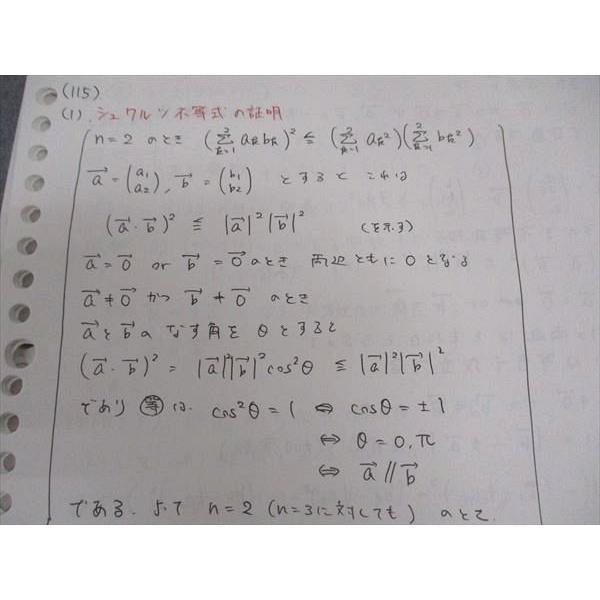 (115)
(1) シュワルツ不等式の証明
n=2 のとき (Σ_{k=1}^{2} a_k b_k)² ≦ (Σ_{k=1}^{2} a_k²)(Σ_{k=1}^{2} b_k²)
a⃗ = (a₁ a₂), b⃗ = (b₁ b₂) とすると これは
(a⃗・b⃗)² ≦ |a⃗|²|b⃗|² (を示す)
a⃗ = 0⃗ or b⃗ = 0⃗ のとき 両辺ともに 0 となる
a⃗ ≠ 0⃗ かつ b⃗ ≠ 0⃗ のとき
a⃗ と b⃗ の なす角を θ とすると
(a⃗・b⃗)² = |a⃗|²|b⃗|² cos²θ ≦ |a⃗|²|b⃗|²
であり 等 は cos²θ = 1 ⇔ cosθ = ±1
⇔ θ = 0, π
⇔ a⃗ // b⃗
である. よって n=2 (n=3に対しても) のとき